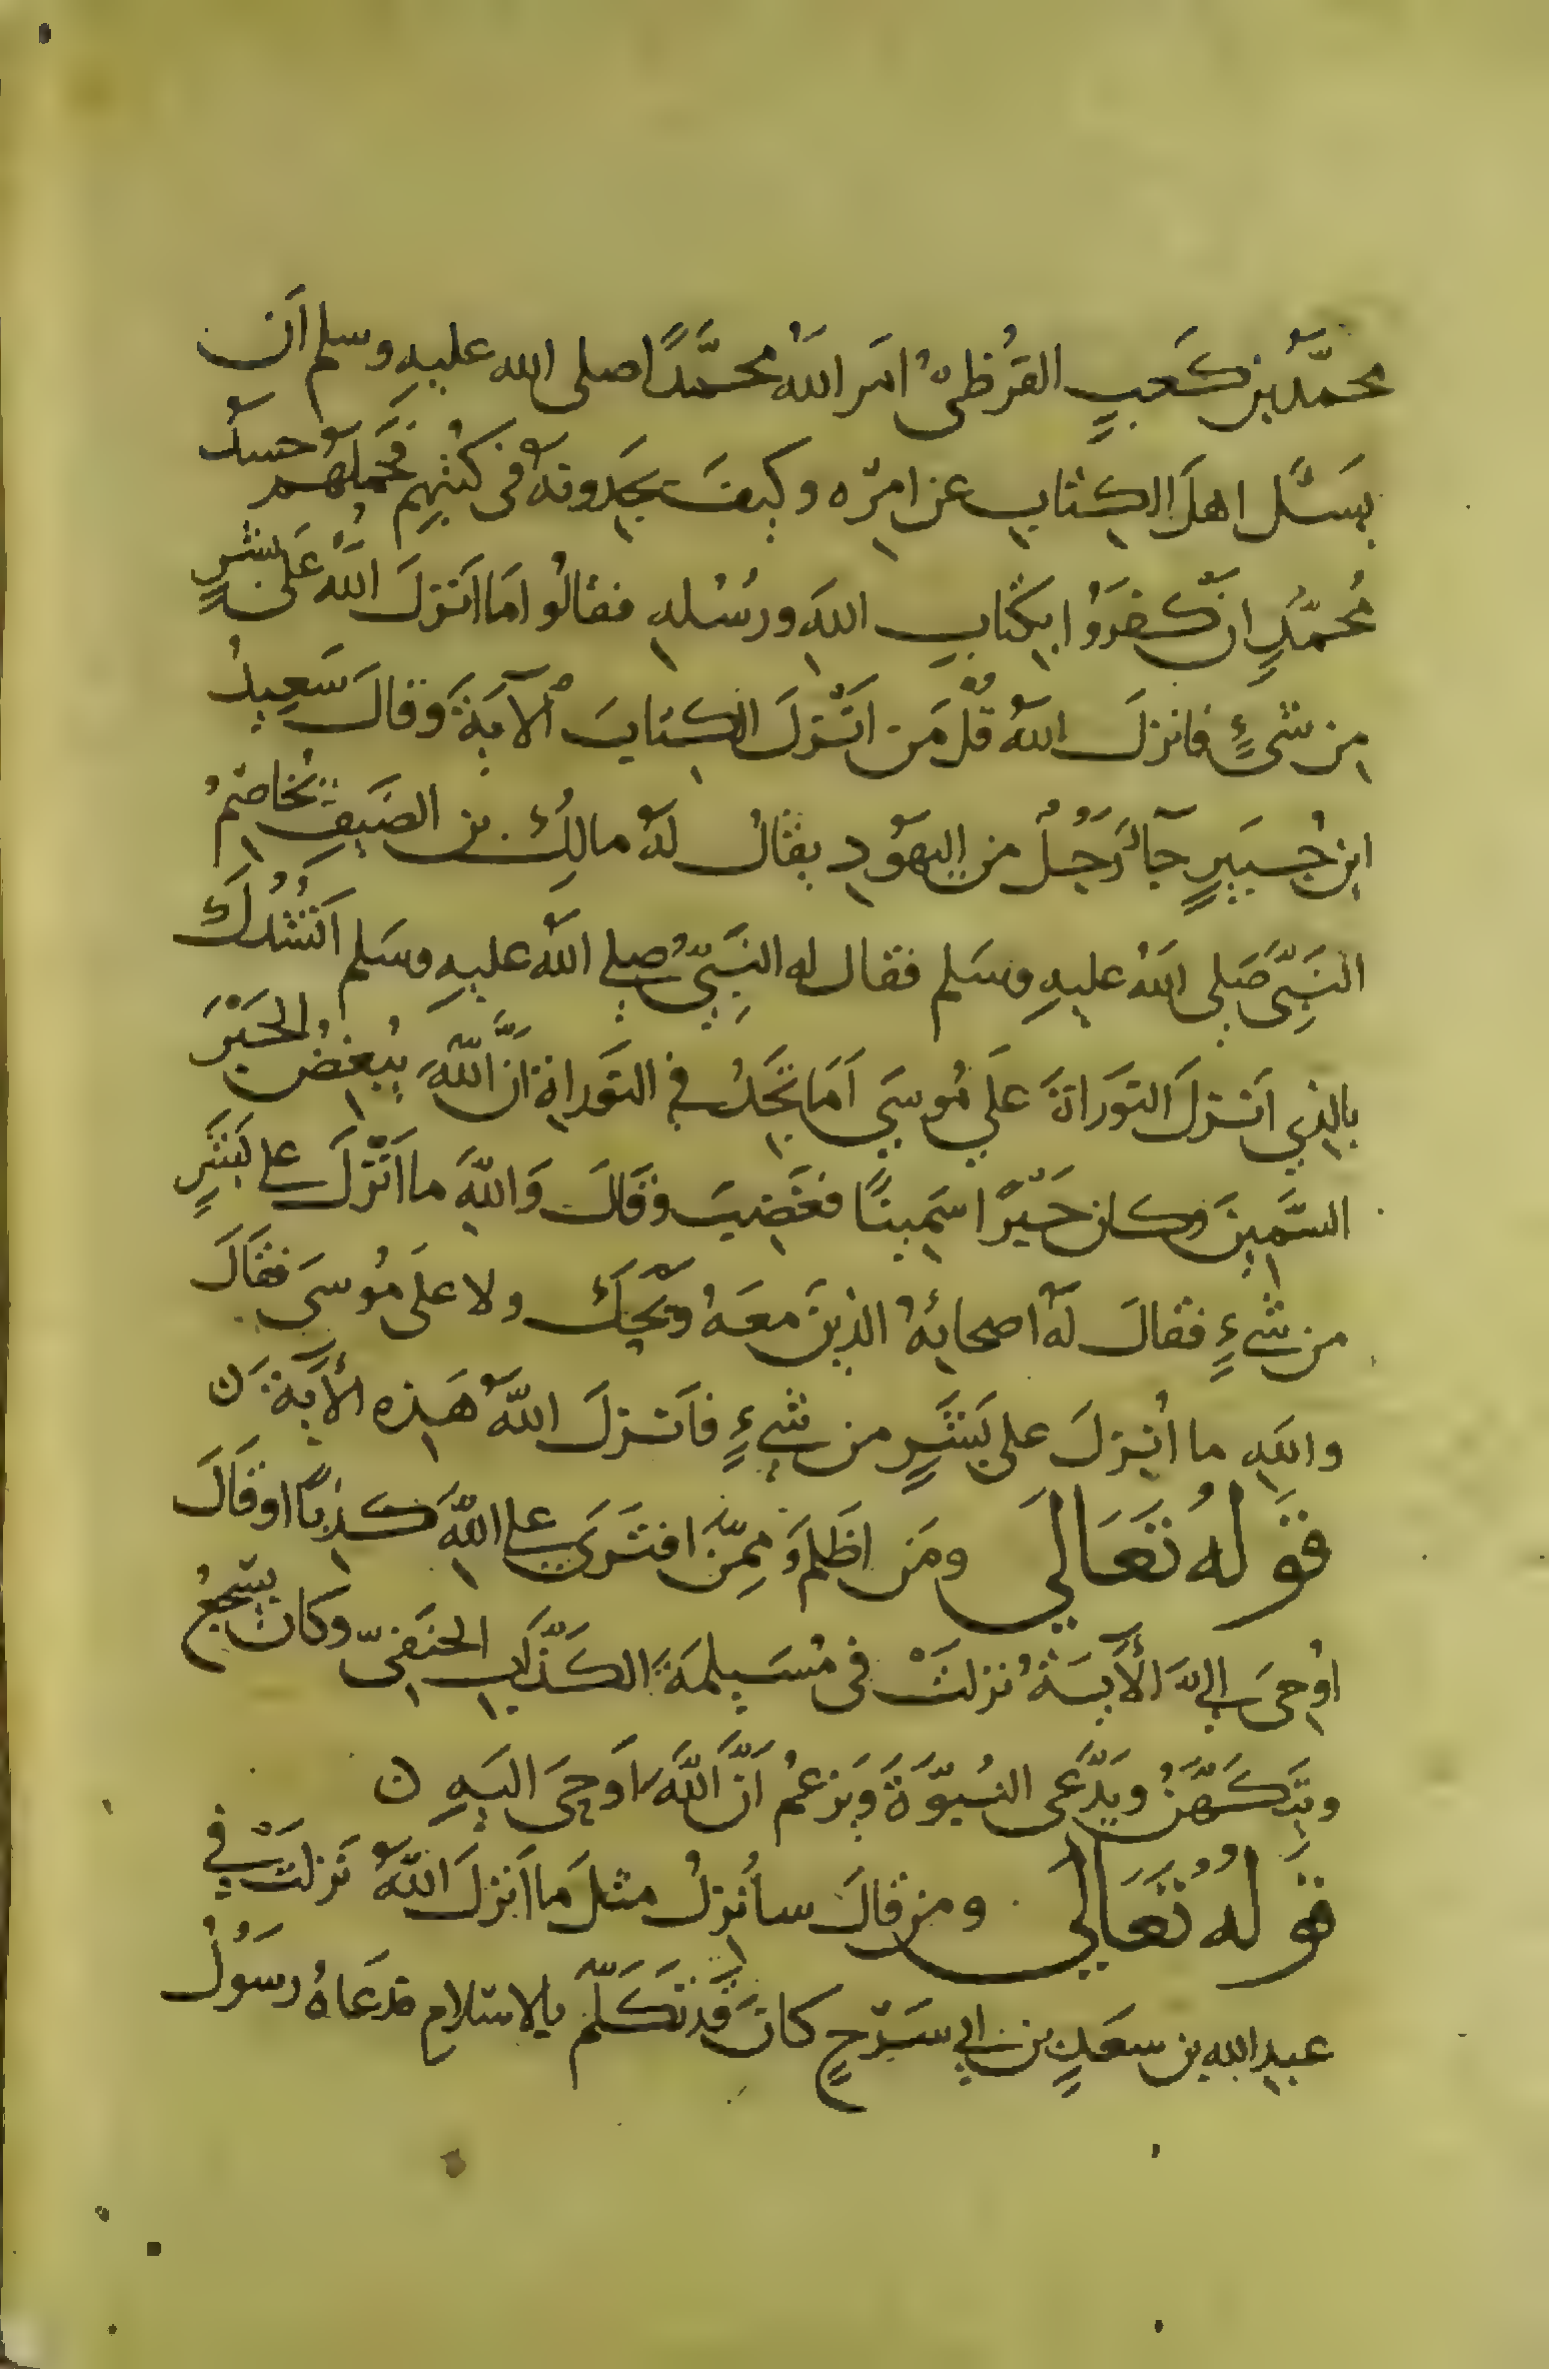 محمَّدُ بن كَعبٍ القُرظىُّ امَر اللهُ محمَّدًا صلى الله عليهِ وسلم اَن
يسَئَل اهلَ الكِتابِ عن امِرْه وكيفَ يجِدونهُ فى كتُبِهِم فحَملهُم حسدُ
مُحمَّدٍ ان كفرَوُا بِكتابِ اللهِ ورسُلهِ فقالُوا مَا اَنزلَ اللَّهُ عَلى بشرٍ
مِن شىءٍ فانزلَ اللهُ قُلْ مَن اَنْزلَ الكِتابَ اْلآيةَ وَقالَ سَعِيدُ
ابن جُبيَرٍ جآءَ رَجُلٌ من اليهَوُدِ يقالُ لهُ مالِكُ بن الضَيفِ يُخاصِمُ
النبِىَّ صَلى اللهُ عليهِ وسَلم فقال له النَبِىُّ صلى اللهُ عليهِ وسَلم اَنْشُدُكَ
بالذِي اَنْزلَ التوَراةَ عَلَي مُوسَي اَمَا تجَِدُ في التوَراةِ انَّ اللَّهَ يُبغِضُ الحَبْرَ
السَّمِينَ وكان حَبْرًا سَمِينًا فغَضِبَ وَقَالَ وَاللهِ ما اَنْزلَ على بَشَرٍ
من شىءٍ فقالَ لهُ اصحابهُ الذِينَ معَهُ ويَحكَ ولا علَى مُوسىَ فقَالَ
واللهِ ما انزلَ على بَشَرٍ من شىءٍ فاَنزلَ اللهُ هَذِه الأَيةَ ن
قوَلهُ تَعَالَي ومَن اظَلمُ مِمَّنِ افترَىَ على اللَّهِ كَذِبًا اوقَالَ
اوُحىَ الىَّ الأَيةُ نزلتْ فى مُسَيلمَةَ الكَذَّابِ الحنَفِىّ وكانَ يسَجعُ
ويتَكَهَّنُ ويَدَّعى النُبوَّةَ وَيزعمُ اَنَّ اللَّهَ اَوحَىَ اليَهِ ن
قوَلهُ تعَالَى ومن قالَ سأُنزِلُ مثلَ ما اَنزلَ اللهُ نَزلتْ في
عبدِ الله بن سعَدٍ بن ابي سَرْحٍ كانَ قدَ تَكلّمَ بالاسَلامِ فدَعاهُ رسَوُلُ